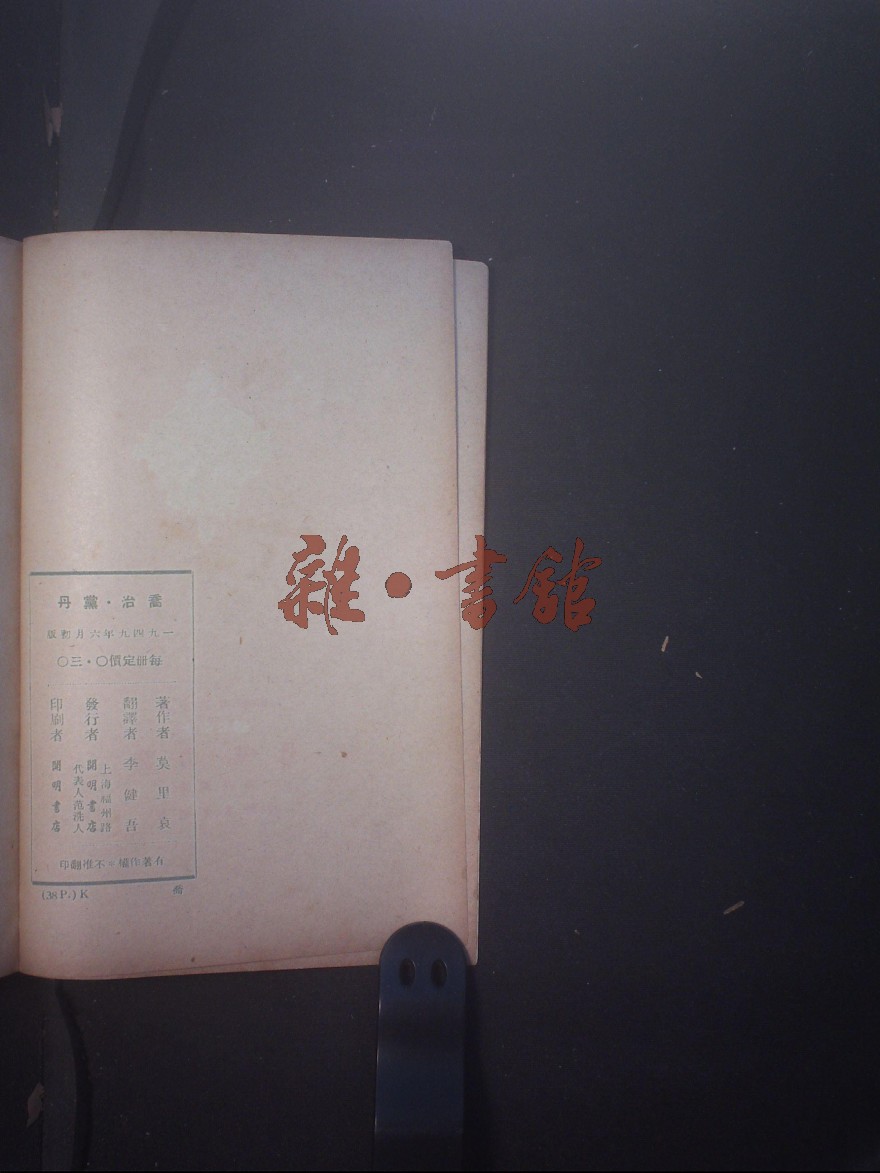 喬治・黨丹
一九四九年六月初版
每册定價〇・三〇
著作者 莫里哀
翻譯者 李健吾
發行者 上海福州路 開明書店 代表人范洗人
印刷者 開明書店
有著作權＊不准翻印
(38 P.) K
雜・書館